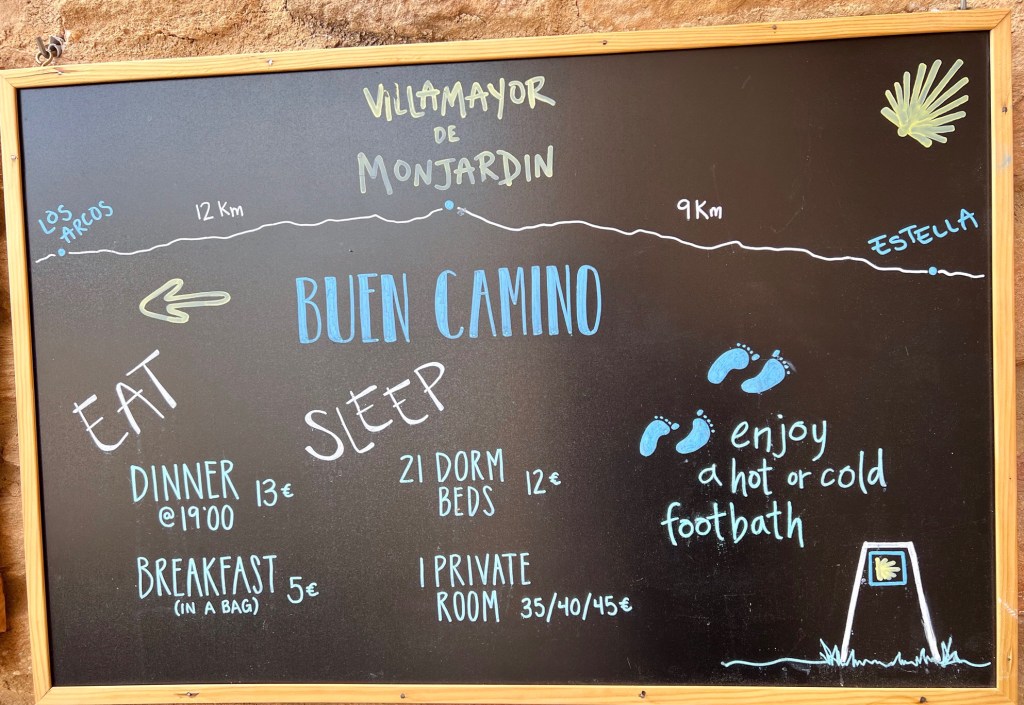 VILLAMAYOR
DE
MONJARDIN
LOS
ARCOS
12 Km
9 Km
ESTELLA
BUEN CAMINO
EAT
DINNER 13€
@19:00
BREAKFAST 5€
(IN A BAG)
SLEEP
21 DORM
BEDS 12€
1 PRIVATE
ROOM 35/40/45€
enjoy
a hot or cold
footbath